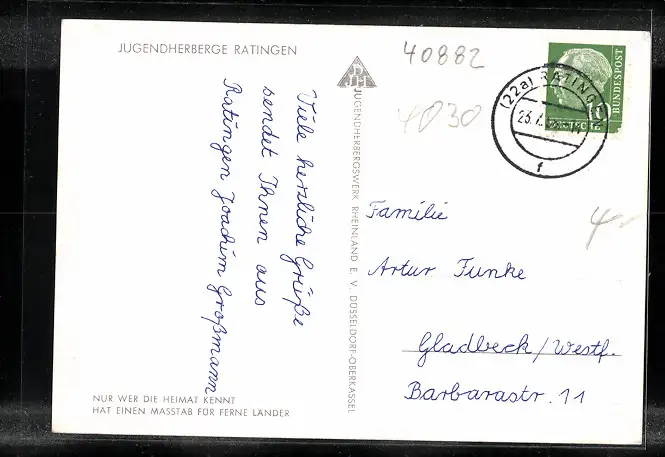 JUGENDHERBERGE RATINGEN
40882
4030
Viele herzliche Grüße
sendet Ihnen aus
Ratingen Joachim Großmann
NUR WER DIE HEIMAT KENNT
HAT EINEN MASSTAB FÜR FERNE LÄNDER
DJH
JUGENDHERBERGSWERK RHEINLAND E. V. DÜSSELDORF-OBERKASSEL
BUNDESPOST
10
(22a) RATINGEN
f
4-
Familie
Artur Funke
Gladbeck/Westf.
Barbarastr. 11